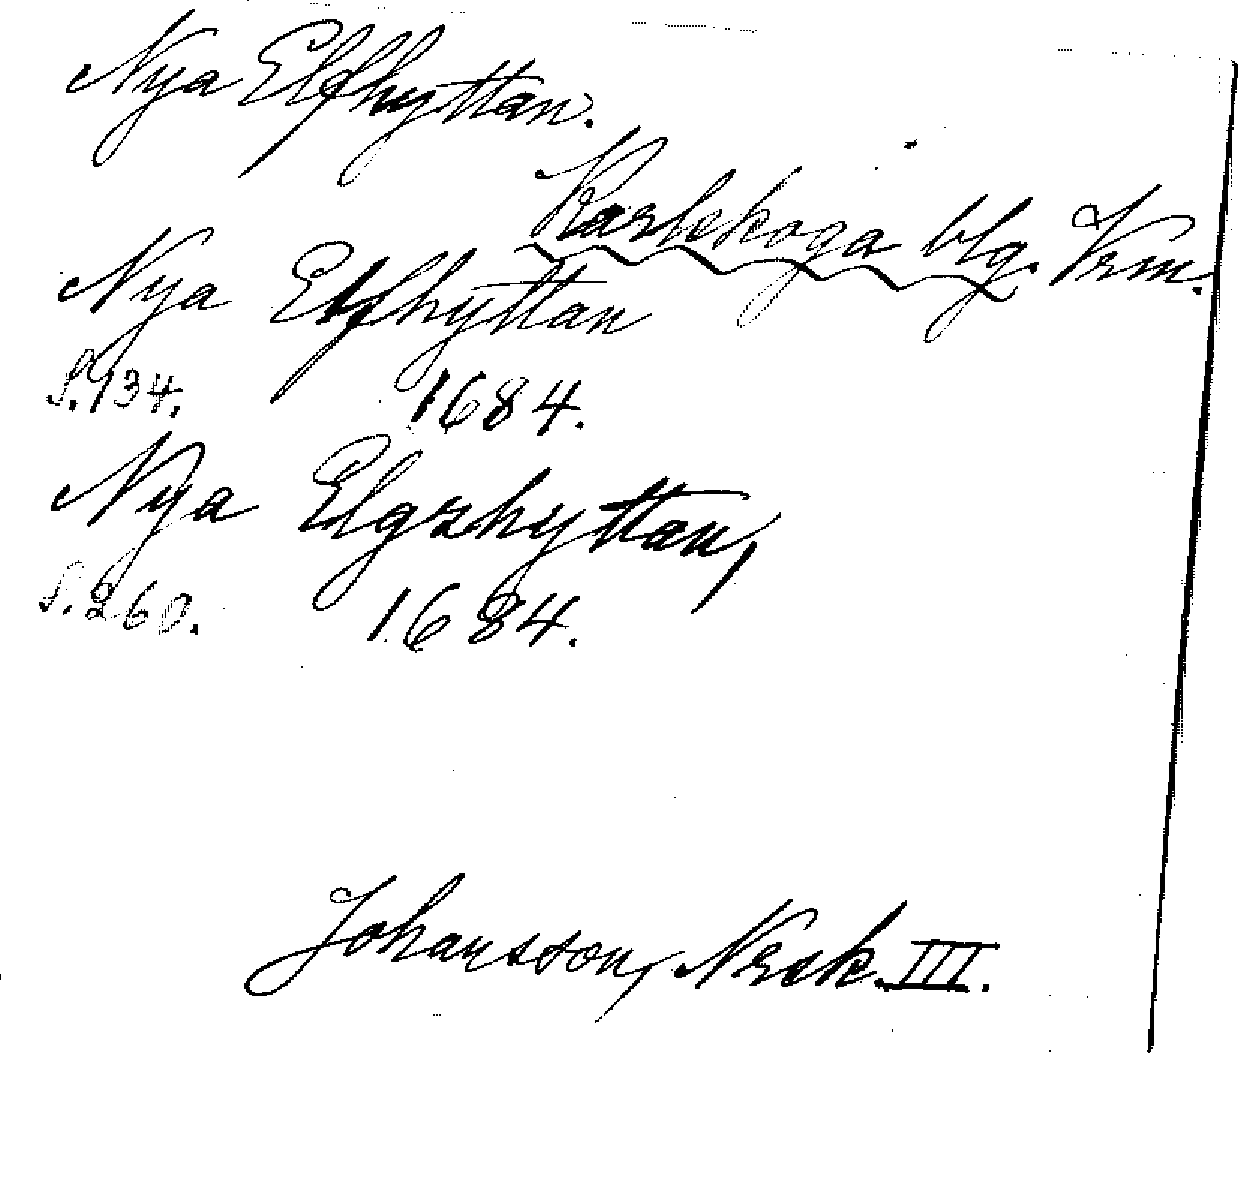 Nya Elfhyttan.
Karlskoga blg. Vrm.
Nya Elfhyttan
S. 134. 1684.
Nya Elgzhyttan,
S. 260. 1684.
Johansson, Nrsk. III.